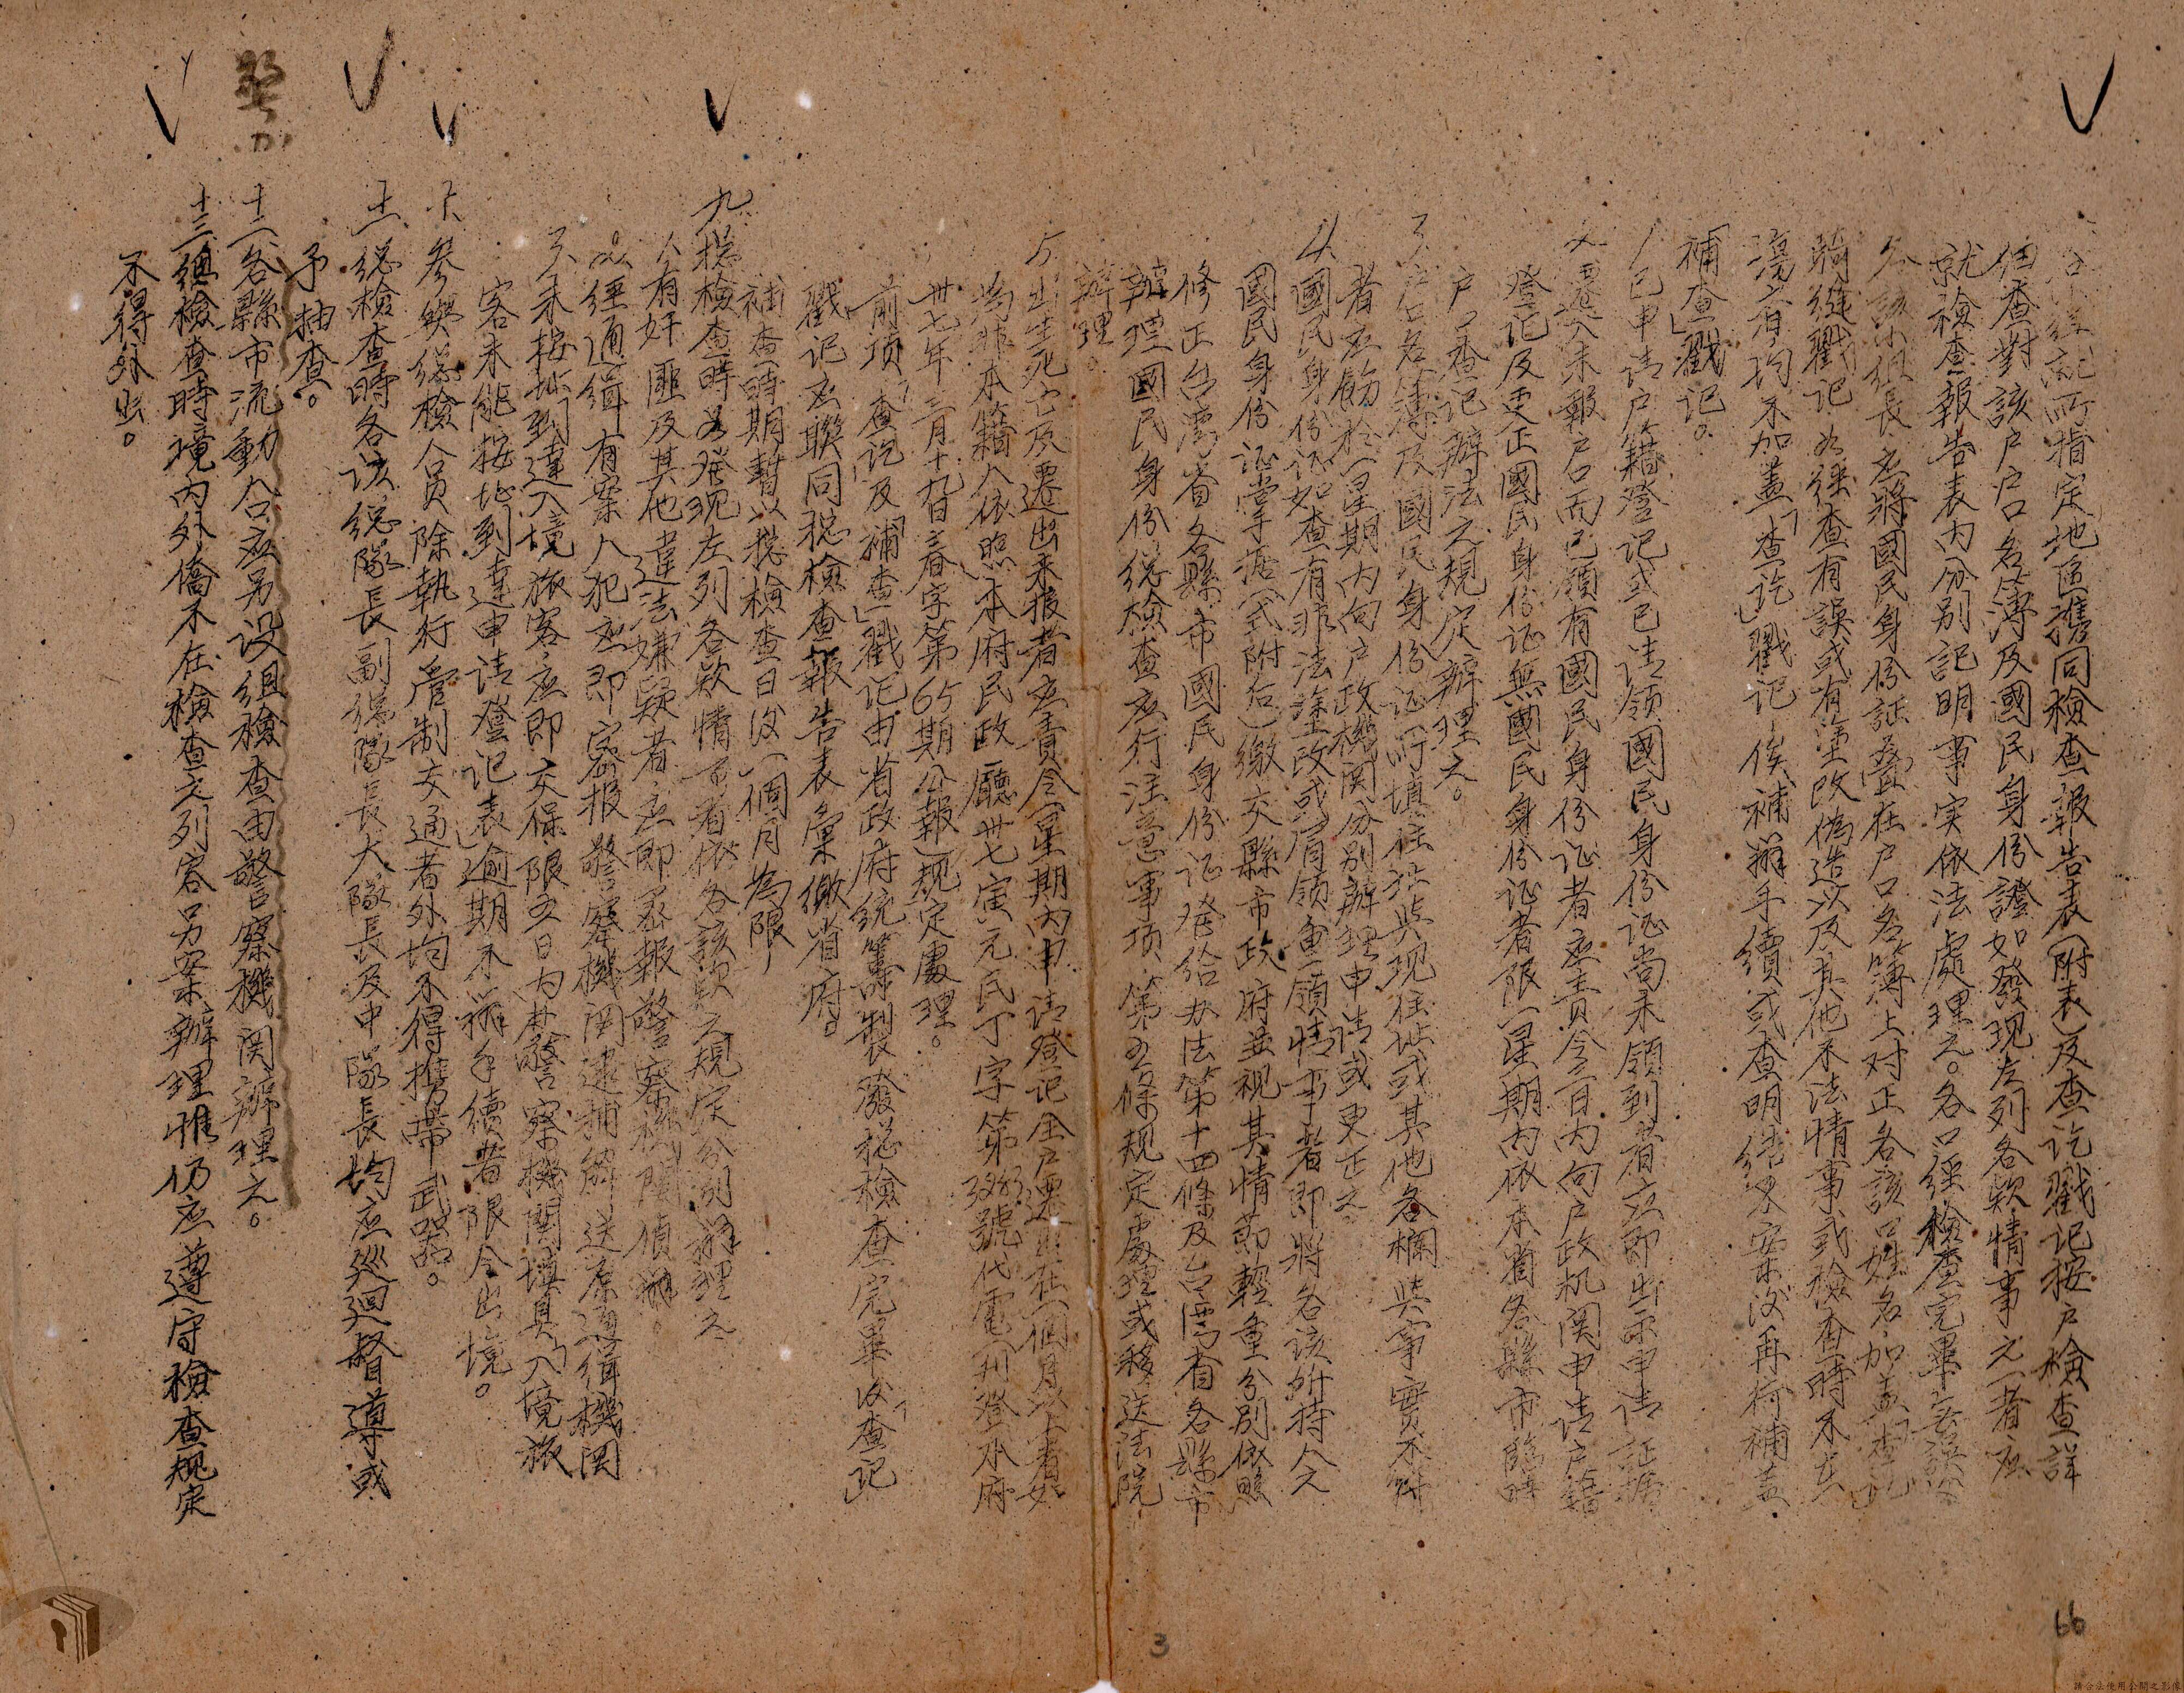 各組配所指定地區携同檢查報告表(附表)及查訖戳記按户檢查詳
細查對該户户口名簿及國民身份證如發現左列各欵情事之一者應
就檢查報告表内分别記明事实依法處理之。各口經檢查完畢
該小組長应將國民身份証叠在户口名簿上对正各該口姓名加盖「查訖」
騎縫戳記如經查有誤或有塗改偽造以及其他不法情事或檢查時不在
均不加盖「查訖」戳記俟補辦手續或查明結案後再行補盖
「補查」戳記。
1.已申请户籍登记或已请領國民身份证尚未領到者应即出示申请証據
2.遷入未報户口而已領有國民身份证者应责令三日内向户政机関申请户籍
登记及更正國民身份证無國民身份证者限一星期内依本省各縣市臨時
户口查记辦法之規定辦理之。
3.户口名簿及國民身份证所填住址與现住址或其他各欄與事實不符
者应飭於一星期内向户政機関分别辦理申请或更正之
4.國民身份证如查有非法塗改或冒领重領情事者即將各該所持人之
國民身份证掌握(式附后)繳交縣市政府並视其情節輕重分别依照
修正台湾省各縣市國民身份证登给办法第十四條及台湾省各縣市
辦理國民身份總檢查应行注意事项第五條規定處理或移送法院
辦理。
5.出生死亡及遷出未报者应责令一星期内申请登记全户遷出在一個月以上者如
為非本籍人依照「本府民政廳卅七寅元民丁字第號代電(刊登本府
卅七年三月十九日春字第65期公報)規定處理。
前项「查訖」及「補查」戳记由省政府統籌製發總檢查完畢後「查記」
戳记应聯同總檢查報告表彙繳省府。
補查時期暫以總檢查日後一個月為限
九總檢查時如發现左列各欵情事者依各該欵之規定分别辦理之
1.有奸匪及其他違法嫌疑者应即密報警察機関偵辦。
2.經通緝有案人犯应即密报警察機関逮捕解送原通緝機関
3.未按址到達入境旅客应即交保限五日内赴警察機関填具「入境旅
客未能按址到達申请登记表」逾期不辦手續者限令出境。
十参與總檢人員除執行管制交通者外均不得攜帶武器。
十一總檢查時各該總隊長副總隊長大隊長及中隊長均应巡廻督導或
予抽查。
十二各縣市流動户口应另设組檢查由警察機関辦理之。
十三總檢查時境内外僑不在檢查之列容另案辦理惟仍应遵守檢查规定
不得外出。
3
66
請合法使用公開之影像